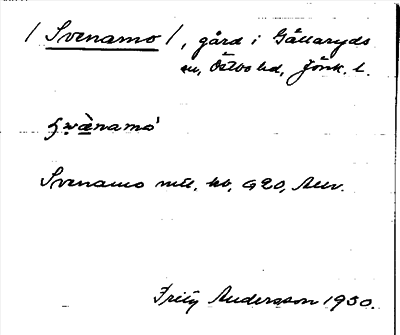 / Svenamo /, gård i Gällaryds
sn, Östbo hd, Jönk. l.
Svenamo mtl. kb, G20,
Fritz Andersson 1930.